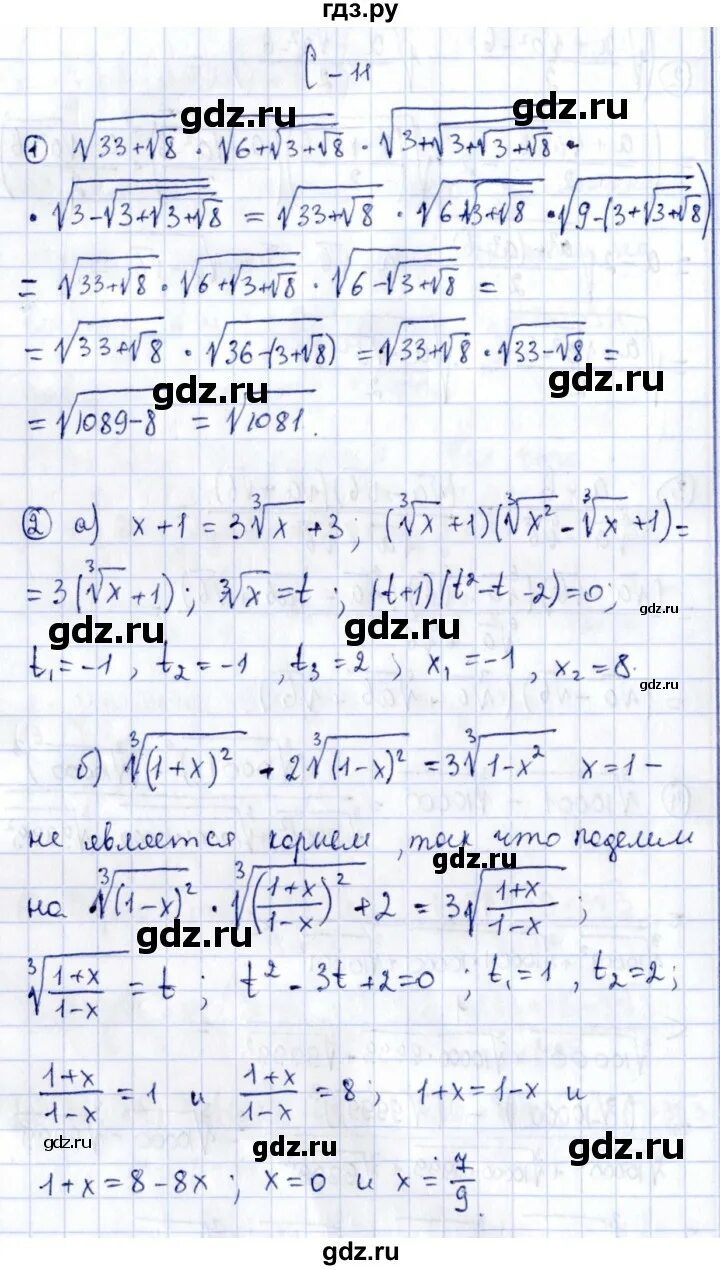 гдз.ру
С-11
gdz.ru gdz.ru
① √(33+√8) · √(6+√(3+√8)) · √(3+√(3+√(3+√8))) ·
· √(3-√(3+√(3+√8))) = √(33+√8) · √(6+√(3+√8)) · √(9-(3+√(3+√8)))
= √(33+√8) · √(6+√(3+√8)) · √(6-√(3+√8)) =
gdz.ru gdz.ru
= √(33+√8) · √(36-(3+√8)) = √(33+√8) · √(33-√8) =
gdz.ru gdz.ru
= √(1089-8) = √1081.
② а) x+1 = 3∛x + 3; (∛x+1)(∛x² - ∛x + 1) =
= 3(∛x+1); ∛x = t; (t+1)(t²-t-2)=0; gdz.ru
gdz.ru gdz.ru
t₁=-1, t₂=-1, t₃=2; x₁=-1, x₂=8. gdz.ru
б) ∛(1+x)² + 2∛(1-x)² = 3∛(1-x²) x=1 -
не является корнем, так что поделим
gdz.ru
на ∛(1-x)² · ∛((1+x)/(1-x))² + 2 = 3∛((1+x)/(1-x));
gdz.ru
∛((1+x)/(1-x)) = t; t²-3t+2=0; t₁=1, t₂=2;
(1+x)/(1-x) = 1 и (1+x)/(1-x) = 8; 1+x=1-x и
gdz.ru gdz.ru gdz.ru
1+x=8-8x; x=0 и x=7/9.
gdz.ru